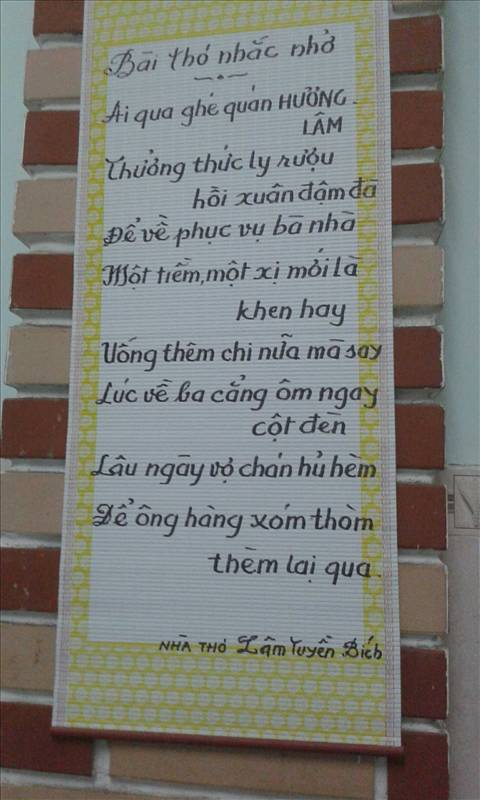 Bài thơ nhắc nhở
Ai qua ghé quán HƯƠNG
LÂM
Thưởng thức ly rượu
hồi xuân đậm đà
Để về phục vụ bà nhà
Một tiềm, một xị mới là
khen hay
Uống thêm chi nữa mà say
Lúc về ba cẳng ôm ngay
cột đèn
Lâu ngày vợ chán hủ hèm
Để ông hàng xóm thòm
thèm lai qua.
NHÀ THƠ Lâm Tuyền Bích